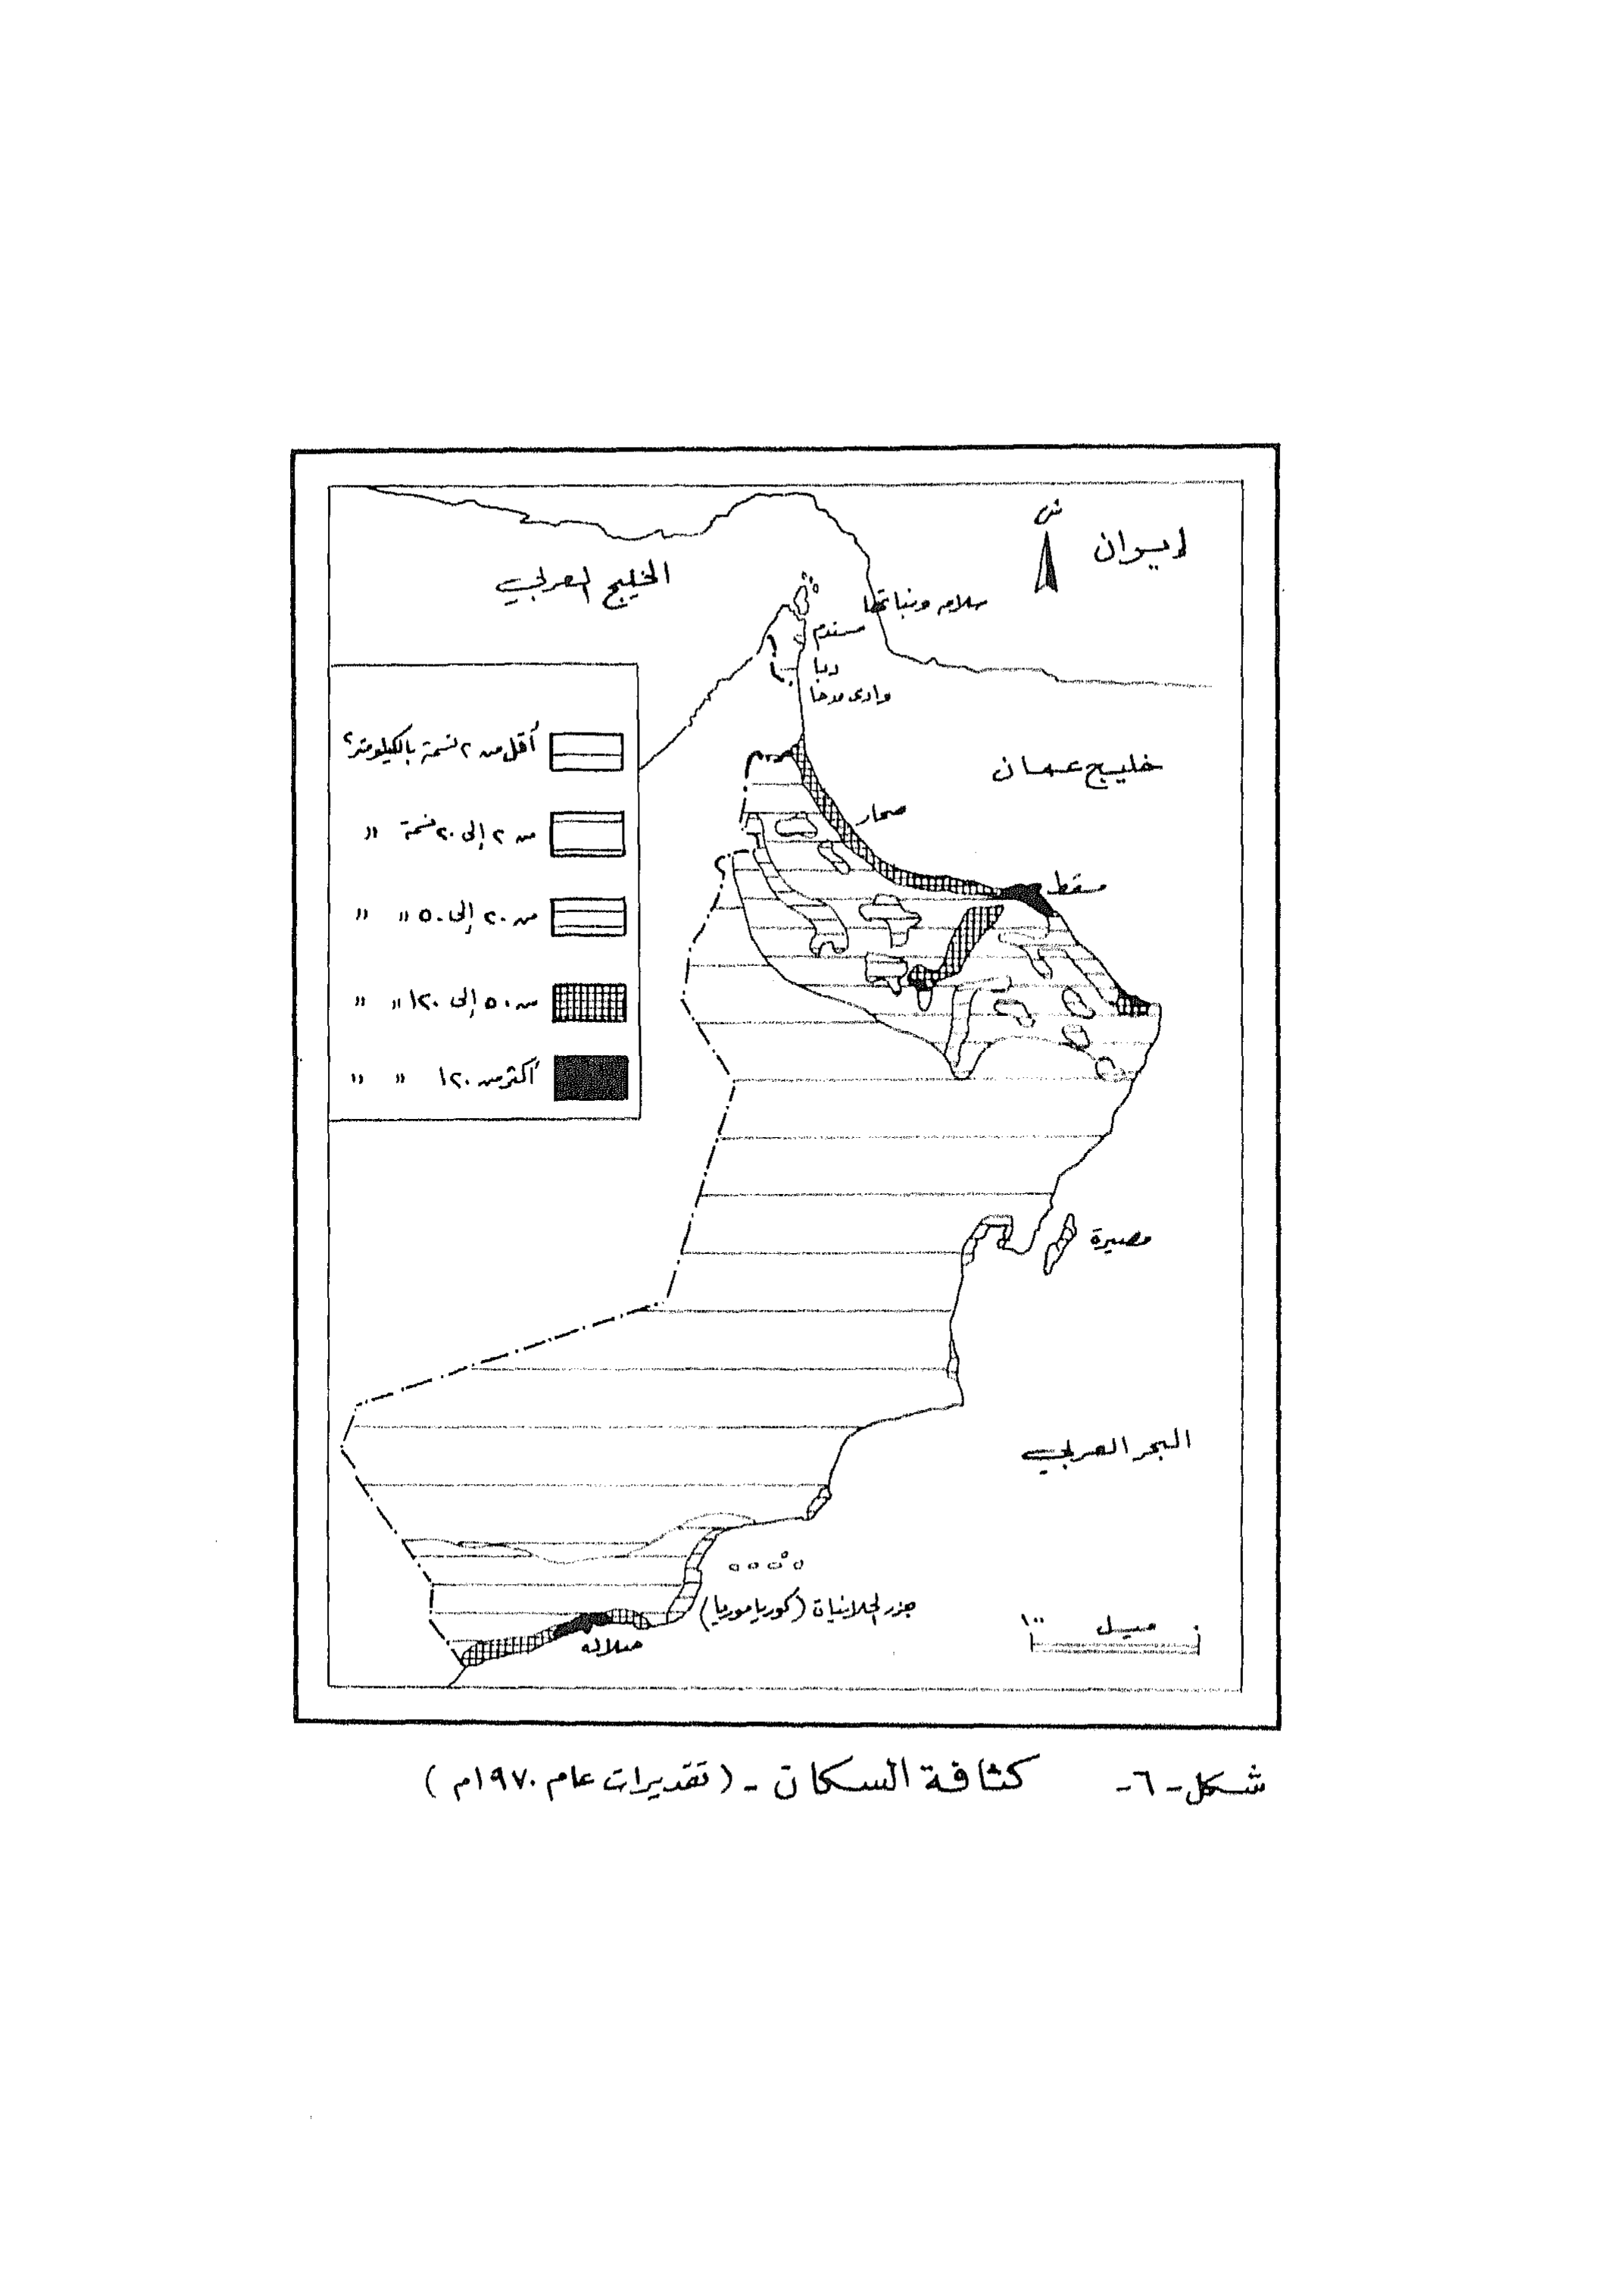 ش
إيران
الخليج العربي
سلامه وبناتها
مسندم
دبا
وادى مدحا
خليج عمان
صحار
مسقط
أقل من ٢ نسمة بالكيلومتر٢
من ٢ إلى ٢٠ نسمة "
من ٢٠ إلى ٥٠ " "
من ٥٠ إلى ١٢٠ " "
أكثر من ١٢٠ " "
مصيرة
البحر العربي
جزر الحلانيات (كوريا موريا)
صلاله
١٠٠ ميل ٠
شكل -٦- كثافة السكان - (تقديرات عام ١٩٧٠م)